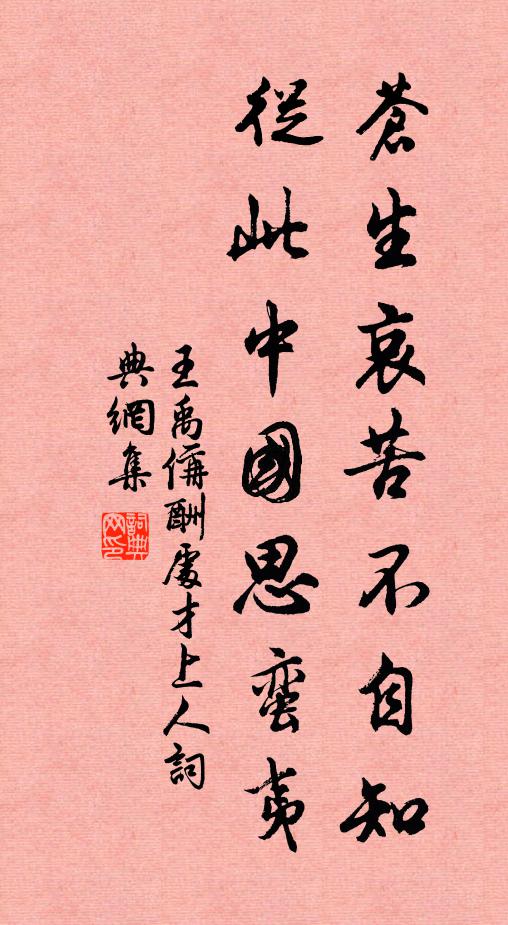 蒼生哀苦不自知
從此中國思蠻夷
王禹偁酬處才上人詞
典網集
詞典網印